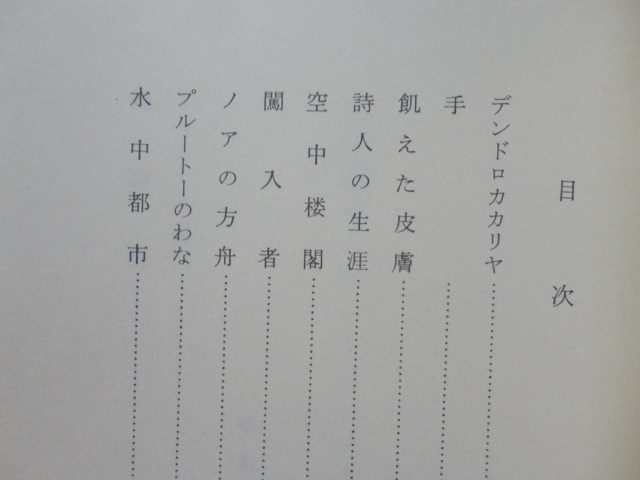 目次
デンドロカカリヤ……………………
手……………………
飢えた皮膚……………………
詩人の生涯……………………
空中楼閣……………………
闖入者……………………
ノアの方舟……………………
プルートーのわな……………………
水中都市……………………